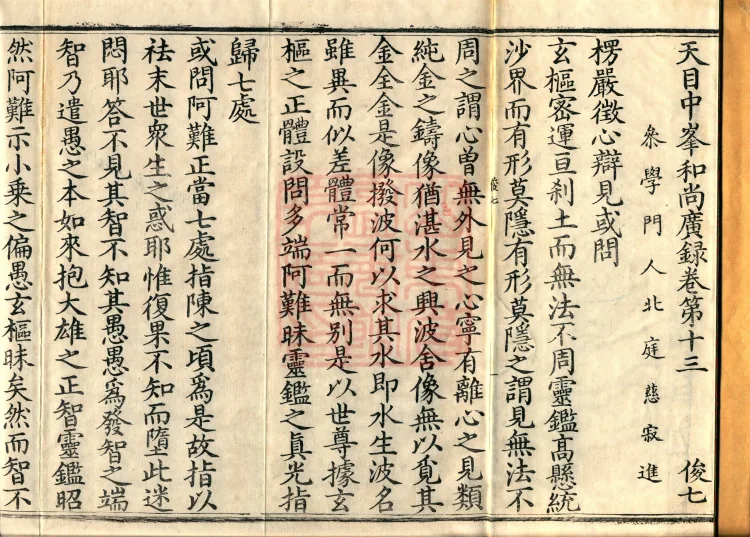 天目中峯和尚廣録卷第十三 俊七
叅學門人北庭慈寂進
楞嚴徵心辯見或問
玄樞密運亘刹土而無法不周靈鑑高懸統
沙界而有形莫隱有形莫隱之謂見無法不
周之謂心曽無外見之心寧有離心之見類
純金之鑄像猶湛水之興波舍像無以覓其
金全金是像撥波何以求其水即水生波名
雖異而似差體常一而無别是以世尊據玄
樞之正體設問多端阿難昧靈鑑之真光指
歸七處
或問阿難正當七處指陳之頃爲是故指以
祛末世衆生之惑耶惟復果不知而墮此迷
悶耶答不見其智不知其愚愚爲發智之端
智乃遣愚之本如來抱大雄之正智靈鑑昭
然阿難示小乗之偏愚玄樞昧矣然而智不
俊七